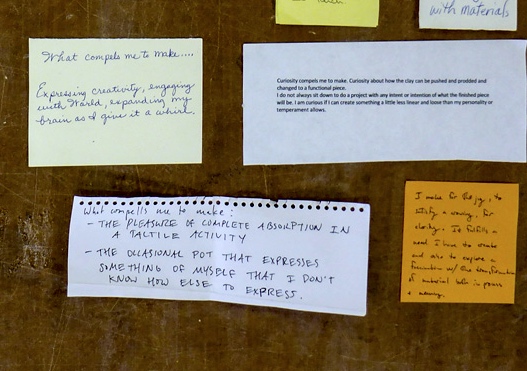 with materials
What compels me to make....
Expressing creativity, engaging
with World, expanding my
brain as I give it a whirl.
Curiosity compels me to make. Curiosity about how the clay can be pushed and prodded and
changed to a functional piece.
I do not always sit down to do a project with any intent or intention of what the finished piece
will be. I am curious if I can create something a little less linear and loose than my personality or
temperament allows.
What compells me to make:
- THE PLEASURE OF COMPLETE ABSORPTION IN
A TACTILE ACTIVITY
- THE OCCASIONAL POT THAT EXPRESSES
SOMETHING OF MYSELF THAT I DON'T
KNOW HOW ELSE TO EXPRESS.
I make for the joy, to
satisfy a craving, for
clarity. It fulfills a
need I have to create
and also to explore a
fascination w/ the transformation
of material